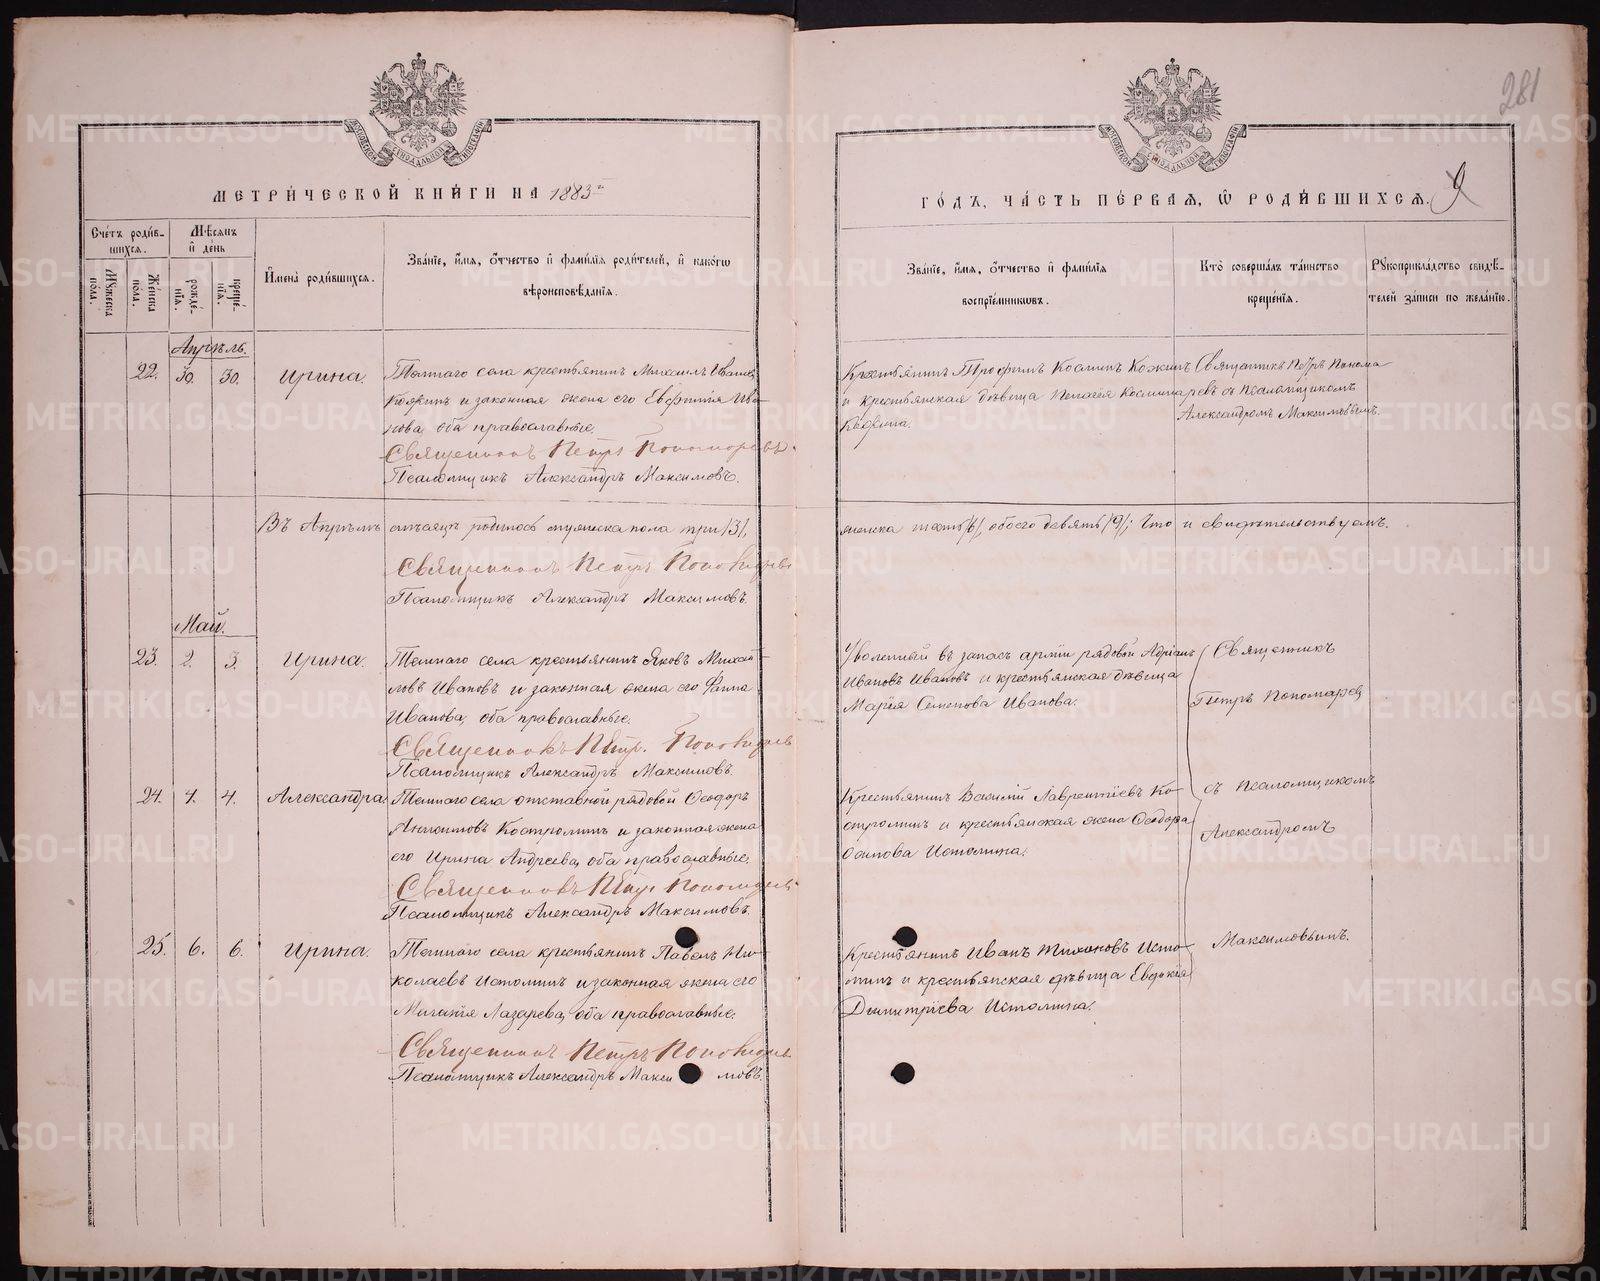 281
МОСКОВСКОЙ СѴНОДАЛЬНОЙ ТИПОГРАФІИ
МОСКОВСКОЙ СѴНОДАЛЬНОЙ ТИПОГРАФІИ
МЕТРИ́ЧЕСКОЙ КНИ́ГИ НА 1883й
ГО́ДЪ, ЧА́СТЬ ПЕ́РВАЯ, Ѡ РОДИ́ВШИХСЯ. 9
Сче́тъ роди́в-
шихся.
Мѣсяцъ
и день
Мужеска
пола.
Женска
пола.
рожде-
нія.
креще-
нія.
Имена роди́вшихся.
Званіе, имя, отчество и фамилія родителей, и какогѡ
вѣроисповѣданія.
Званіе, имя, отчество и фамилія
воспріемниковъ.
Кто совершалъ таинство
крещенія.
Рукоприкладство свидѣ-
телей записи по желанію.
Апрѣль.
22. 30. 30. Ирина.
Темнаго села крестьянинъ Михаилъ Ивановъ
Кожинъ и законная жена его Евфимія Ива-
нова, оба православные.
Священникъ Петръ Пономаревъ
Псаломщикъ Александръ Максимовъ.
Крестьянинъ Трофимъ Козминъ Кожинъ
и крестьянская дѣвица Пелагея Космина
Кожина.
Священникъ Петръ Понома
ревъ съ псаломщикомъ
Александромъ Максимовымъ.
Въ Апрѣлѣ мѣсяцѣ родилось мужеска пола три /3/,
женска шесть /6/, обоего девять /9/; Что и свидѣтельствуемъ.
Священникъ Петръ Пономаревъ
Псаломщикъ Александръ Максимовъ.
Май.
23. 2. 3. Ирина.
Темнаго села крестьянинъ Яковъ Михай-
ловъ Ивановъ и законная жена его Фаина
Иванова, оба православные.
Священникъ Петръ Пономаревъ
Псаломщикъ Александръ Максимовъ.
Уволенный въ запасъ арміи рядовой Адріанъ
Ивановъ Ивановъ и крестьянская дѣвица
Марія Семенова Иванова.
Священникъ
Петръ Пономарев
24. 4. 4. Александра.
Темнаго села отставной рядовой Ѳеодоръ
Анисимовъ Костроминъ и законная жена
его Ирина Андреева, оба православные.
Священникъ Петръ Пономаревъ
Псаломщикъ Александръ Максимовъ.
Крестьянинъ Василій Лаврентіевъ Ко-
строминъ и крестьянская жена Ѳеодора
Осипова Истомина.
съ Псаломщикомъ
Александромъ
25. 6. 6. Ирина.
Темнаго села крестьянинъ Павелъ Ни-
колаевъ Истоминъ и законная жена его
Миланія Лазарева, оба православные.
Священникъ Петръ Пономаревъ
Псаломщикъ Александръ Максимовъ.
Крестьянинъ Иванъ Тихоновъ Исто-
минъ и крестьянская дѣвица Евдокія
Димитріева Истомина.
Максимовымъ.
METRIKI.GASO-URAL.RU